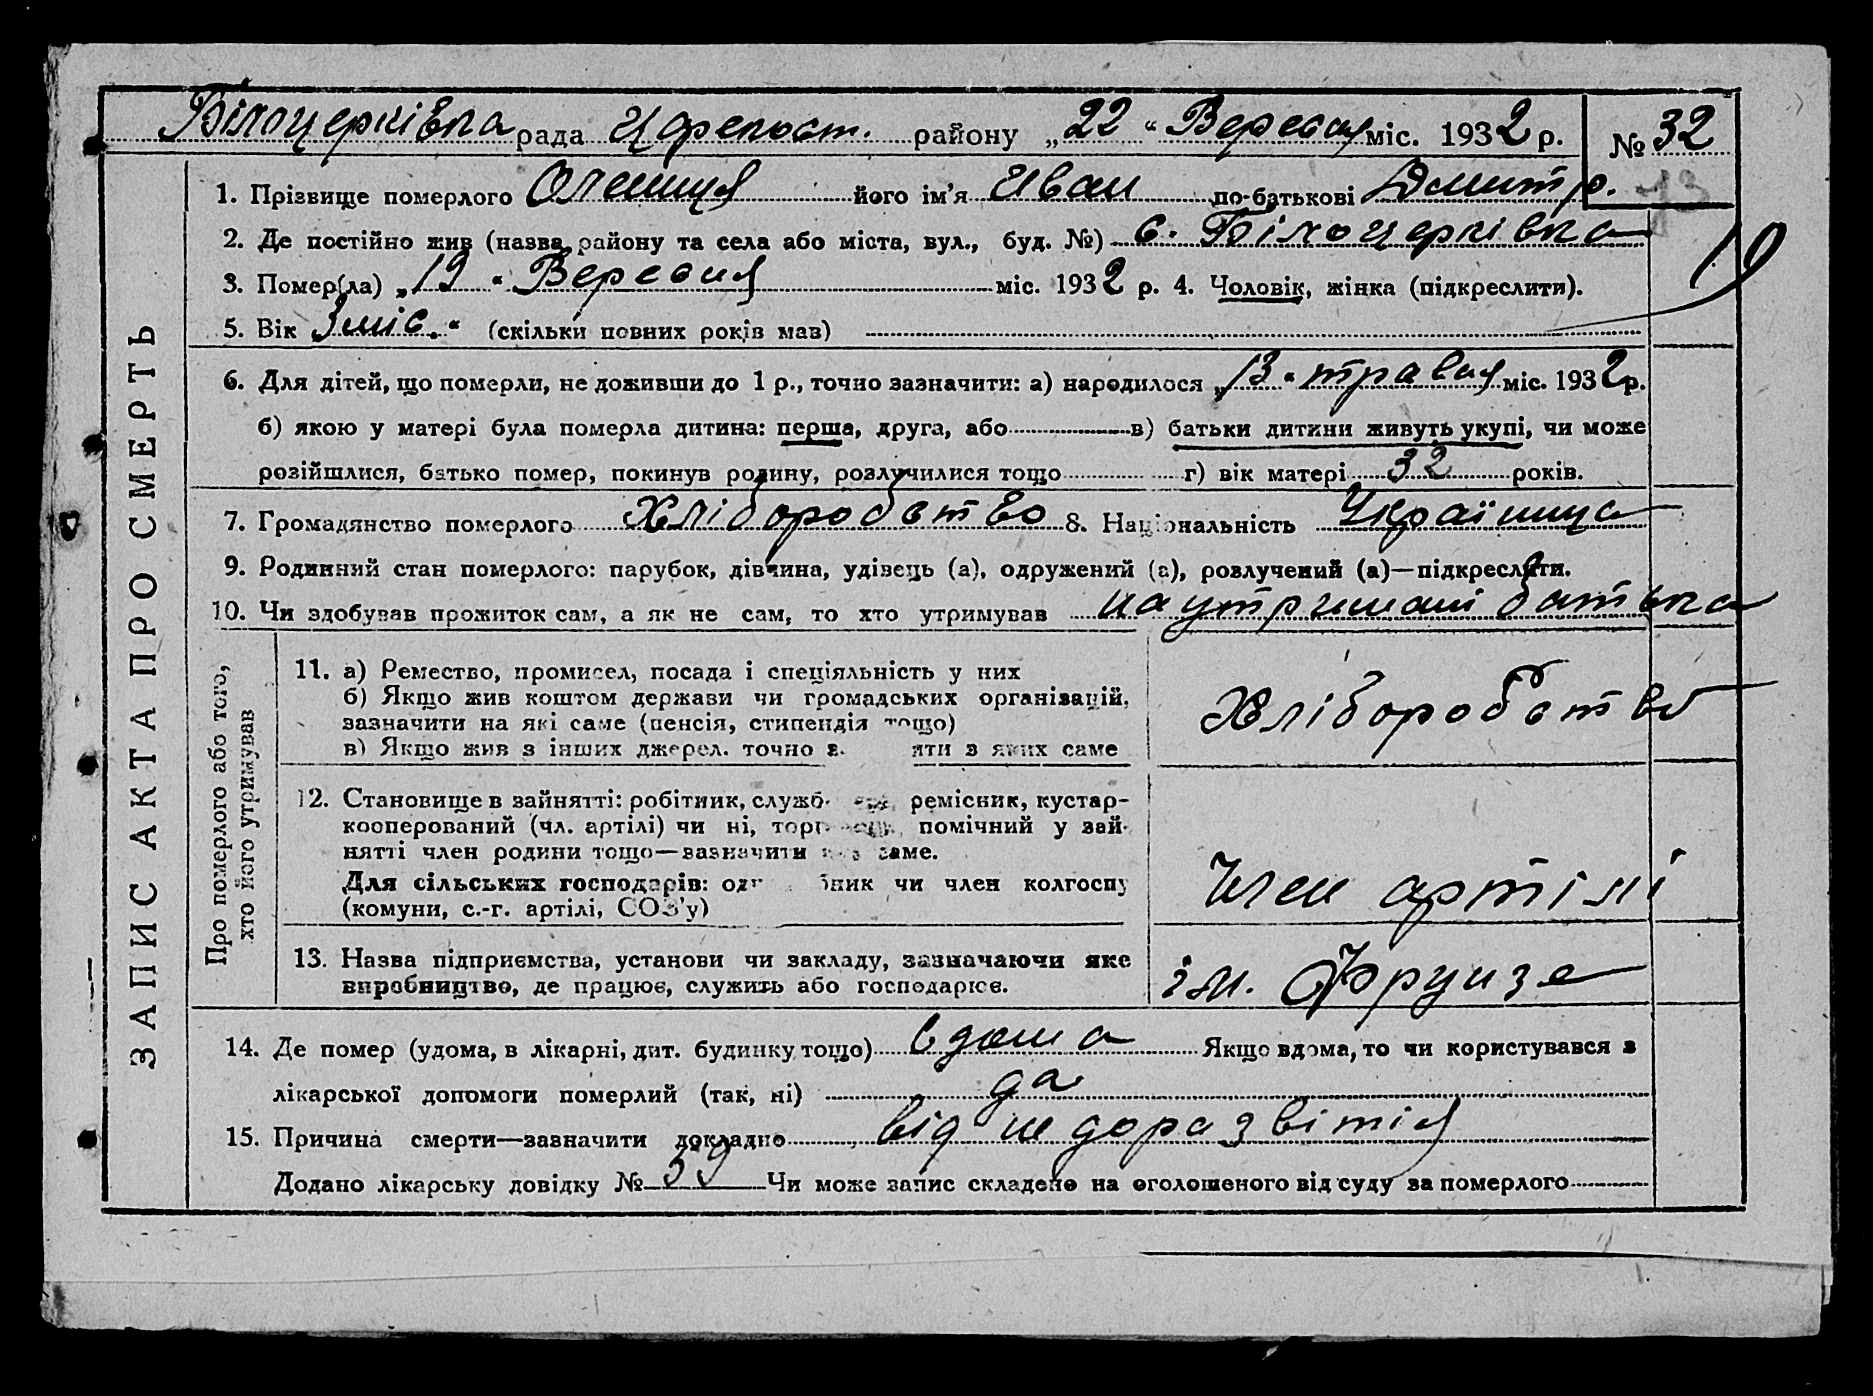 Білоцерківка рада Церепост. району „22“ Вересня міс. 1932 р. № 32
1. Прізвище померлого Олешця його ім’я Иван по-батькові Дмитр.
2. Де постійно жив (назва району та села або міста, вул., буд. №) с. Білоцерківка
19
3. Помер(ла) „19“ Вересня міс. 1932 р. 4. Чоловік, жінка (підкреслити).
5. Вік 3 міс. “ (скільки повних років мав)
6. Для дітей, що померли, не доживши до 1 р., точно зазначити: а) народилося „13“ травня міс. 1932 р.
б) якою у матері була померла дитина: перша, друга, або в) батьки дитини живуть укупі, чи може
розійшлися, батько помер, покинув родину, розлучилися тощо г) вік матері 32 років.
7. Громадянство померлого Хлібороբство 8. Національність Українца
9. Родинний стан померлого: парубок, дівчина, удівець (а), одружений (а), розлучений (а)—підкреслити.
10. Чи здобував прожиток сам, а як не сам, то хто утримував на утримані батька
ЗАПИС АКТА ПРО СМЕРТЬ
Про померлого або того,
хто його утримував
11. а) Ремество, промисел, посада і спеціяльність у них
б) Якщо жив коштом держави чи громадських організацій,
зазначити на які саме (пенсія, стипендія тощо)
в) Якщо жив з інших джерел, точно з яких саме
Хліборобство
12. Становище в зайнятті: робітник, службо ремісник, кустар-
кооперований (чл. артілі) чи ні, торг помічний у зай-
нятті член родини тощо—зазначити саме.
Для сільських господарів: од чи член колгоспу
(комуни, с.-г. артілі, СОЗ’у)
Член артілі
13. Назва підприємства, установи чи закладу, зазначаючи яке
виробництво, де працює, служить або господарює.
ім. Фрунзе
14. Де помер (удома, в лікарні, дит. будинку тощо) вдома Якщо вдома, то чи користувався з
лікарської допомоги померлий (так, ні) да
15. Причина смерти—зазначити докладно від недоразвітія
Додано лікарську довідку № 59 Чи може запис складено на оголошеного від суду за померлого